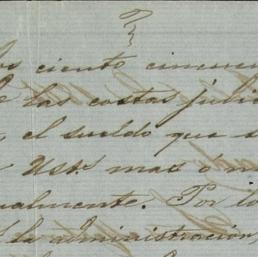 os ciento cincuen
de las costas judic
el sueldo que s
Usted mas ó m
ualmente. Por lo
la administración,